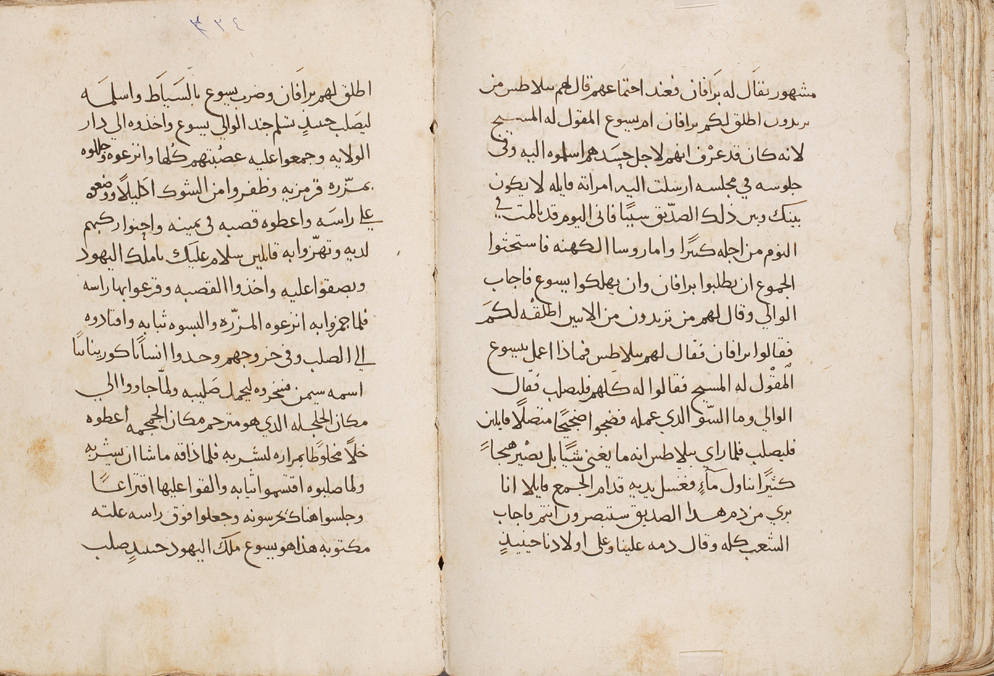 مشهور يقال له برافان فعند اجتماعهم قال لهم بيلاطس من
يريدون اطلق لكم برافان ام يسوع المقول له المسيح
لانه كان قد عرف انهم لاجل حسدهم اسلموه اليه وفي
جلوسه في مجلسه ارسلت اليه امراته قايله لا يكون
بينك وبين ذلك الصديق سيئا فاني اليوم قد تالمت في
النوم من اجله كثيرا واما روسا الكهنه فاستحثوا
الجموع ان يطلبوا برافان وان يهلكوا يسوع فاجاب
الوالي وقال لهم من تريدون من الاثنين اطلقه لكم
فقالوا برافان فقال لهم بيلاطس فماذا اعمل بيسوع
المقول له المسيح فقالوا له كلهم فليصلب فقال
الوالي وما السو الذي عمله فضجوا ضجيجا متصلا قايلين
فليصلب فلما راى بيلاطس انه ما يغني شيا بل يصير هجا
كثيرا تناول مآء فغسل يديه قدام الجمع قايلا انا
بري من دم هدا الصديق ستبصرون انتم فاجاب
الشعب كله وقال دمه علينا وعلى اولادنا حينيذ
٣٣٤
اطلق لهم برافان وضرب يسوع بالسياط واسلمه
ليصلب حينيذ تسلم جند الوالي يسوع واخذوه الى دار
الولايه وجمعوا عليه عصبتهم كلها وانزعوه وجللوه
بمزره قرمزيه وظفروا من الشوك اكليلا ووضعوه
على راسه واعطوه قصبه في يمينه واجثوا ركبهم
لديه وتهزوا به قايلين سلام عليك يا ملك اليهود
وبصقوا عليه واخذوا القصبه وقرعوا بها راسه
فلما هزوا به انزعوه المزره والبسوه ثيابه واقتادوه
الى الصلب وفي خروجهم وجدوا انسانا كورينانيا
اسمه سيمن فسخروه ليحمل صليبه ولما جاووا الى
مكان الجلجله الذي هو مترجم مكان الجمجمه اعطوه
خلا مخلوطا بمراره ليشربه فلما ذاقه ما شا ان يشربه
ولما صلبوه اقتسموا ثيابه والقوا عليها اقتراعا
وجلسوا هناك يحرسونه وجعلوا فوق راسه علته
مكتوبه هذا هو يسوع ملك اليهود حينيذ صلب